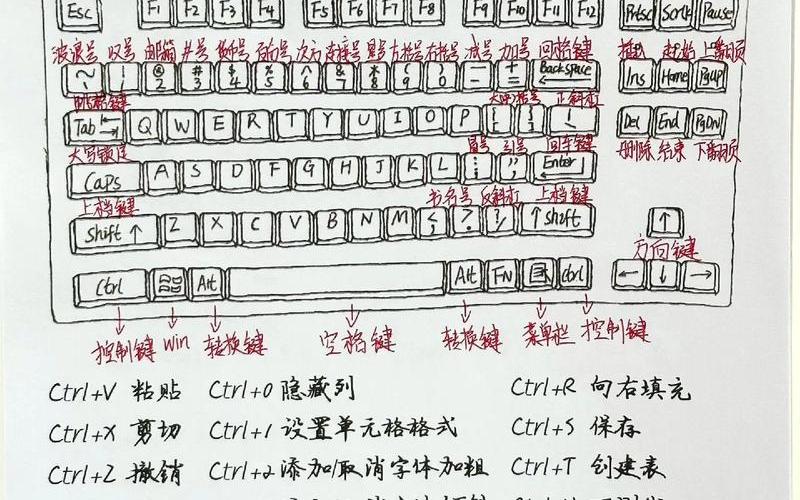 Esc F1 F2 F3 F4 F5 F6 F7 F8 F9 F10 F11 F12 Prtsc Scrlk Pause
波浪号 叹号 邮箱 井号 百分号 次方 连接号 星号 左括号 右括号 减号 加号 回格键 插入 起始 上翻页
~ @ 2 # 3 $ 4 % 5 ^ 6 & 7 * 8 ( 9 ) 0 — + = BackSpace Ins Home PgUP
跳格键 大中括号 正斜杠
Tab Q W E R T Y U I O P { [ } ] Del End PgDN
大写锁定 冒号 引号 回车键 删除 结束 下翻页
Caps A S D F G H J K L Enter
上档键 书名号 反斜杠 上档键
Shift ↑ Z X C V B N M < , ? / ↑ Shift ↑
方向键
Ctrl Alt Alt FN Ctrl ← ↓ →
控制键 Win 转换键 空格键 转换键 菜单栏 控制键
Ctrl+V 粘贴 Ctrl+0 隐藏列 Ctrl+R 向右填充
Ctrl+X 剪切 Ctrl+1 设置单元格格式 Ctrl+S 保存
Ctrl+Z 撤销 Ctrl+2 添加/取消字体加粗 Ctrl+T 创建表